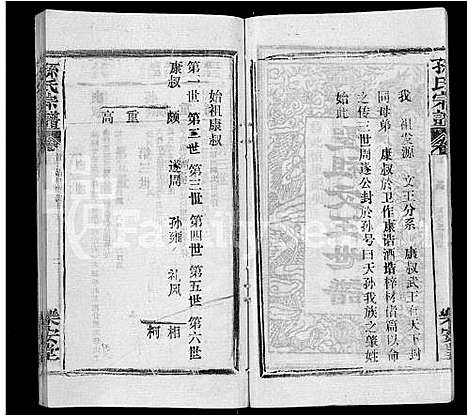 孫氏宗譜
樂安堂
我 祖發源 文王分系 康叔武王有天下封
同母弟 康叔於卫作康誥酒誥梓材偣篇以命
之传三世周遂公封於孫号曰天孫我族之肇姓
始此
始祖康叔
第一世 第二世 第三世 第四世 第五世 第六世
康叔 頗 遂周 孙雍 礼凤 相
柯
重
高
孫氏宗譜
樂安堂